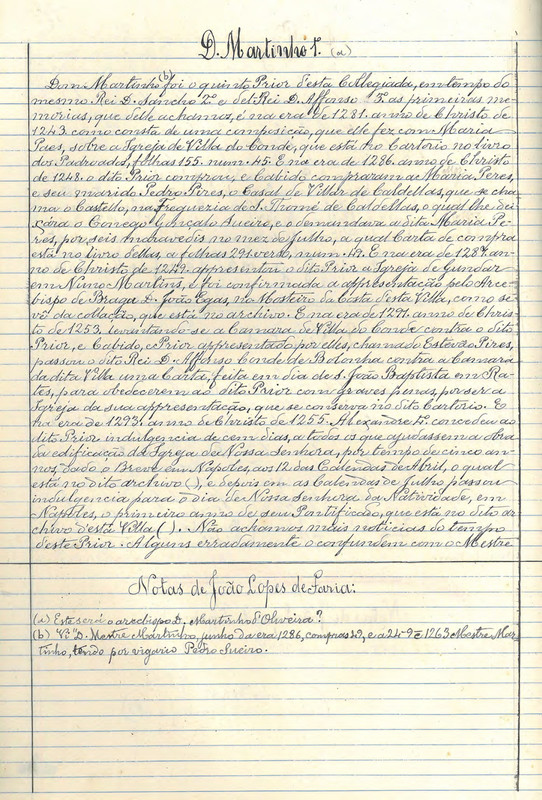 D. Martinho 1. (a)
Dom Martinho (b) foi o quinto Prior d'esta Collegiada, em tempo do
mesmo Rei D. Sancho 2º e del Rei D. Affonso 3. as primeiras me-
morias, que delle achamos, é na era de 1281. anno de Christo de
1243. como consta de uma composição, que elle fez com Maria
Paes, sobre a Igreja de Villa do Conde, que está no Cartorio no livro
dos Padroados, folhas 155. num. 45. E na era de 1286. anno de Christo
de 1248. o dito Prior comprou, e Cabido compraram a Maria Peres,
e seu marido Pedro Pires, o Casal de Villar de Caldellas, que se cha-
ma o Castello, na freguezia de S. Thomé de Caldellas, o qual lhe dei-
xára o Conego Gonçalo Sueiro, e o demandava a dita Maria Pe-
res, por seis maravedis no mez de Julho, a qual Carta de compra
está no livro dellas, a folhas 291. verso, num. 49. E na era de 1287. an-
no de Christo de 1249. appresentou o dito Prior a Igreja de Gundar
em Nuno Martins, e foi confirmada a appresentação pelo Arce-
bispo de Braga D. João Egas, no Mosteiro da Costa d'esta Villa, como se
vê da collação, que está no archivo. E na era de 1291. anno de Chris-
to de 1253. levantando-se a Camara de Villa do Conde contra o dito
Prior, e Cabido, e Prior appresentado por elles, chamado Estevão Pires,
passou o dito Rei D. Affonso Conde de Bolonha contra a Camara
da dita Villa uma Carta, feita em dia de S. João Baptista em Ra-
tes, para obedecerem ao dito Prior com graves penas, por ser a
Igreja da sua appresentação, que se conserva no dito Cartorio. E
na era de 1293. anno de Christo de 1255. Alexandre 4º. concedeu ao
dito Prior indulgencia de cem dias, a todos os que ajudassem a obra
da edificação da Igreja de Nossa Senhora, por tempo de cinco an-
nos, dado o Breve em Napoles, aos 12 das Calendas de Abril, o qual
está no dito archivo ( ), e depois em as Calendas de Julho passou
indulgencia para o dia de Nossa Senhora da Natividade, em
Napoles, o primeiro anno de seu Pontificado, que está no dito ar-
chivo d'esta Villa ( ). Não achamos mais noticias do tempo
d'este Prior. Alguns erradamente o confundem com o Mestre
Notas de João Lopes de Faria:
(a) Este será o arcebispo D. Martinho d'Oliveira?
(b) Vi "D. Mestre Martinho, junho da era 1286, compras 49, e a 24-9-1263 Mestre Mar-
tinho, tendo por vigario Pedro Sueiro.